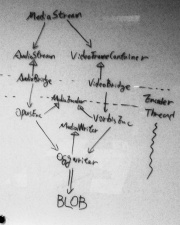 MediaStream
AudioStream VideoTrackContainer
AudioBridge VideoBridge
Encoder
Thread
OpusEnc
VorbisEnc
MediaWriter
OggWriter
BLOB